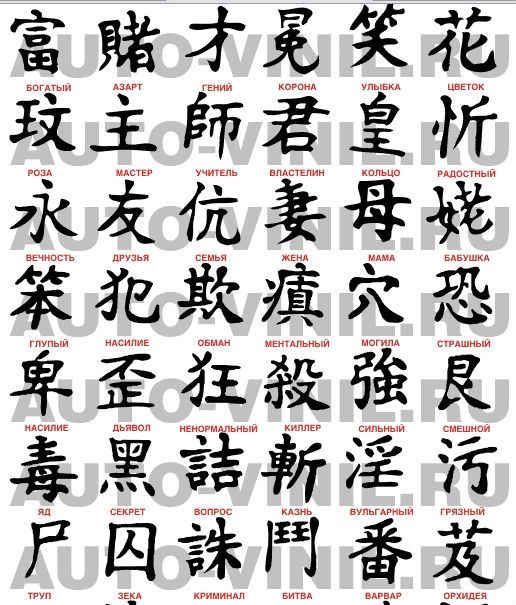 富 賭 才 冕 笑 花
AUTO-VINIL.RU
БОГАТЫЙ АЗАРТ ГЕНИЙ КОРОНА УЛЫБКА ЦВЕТОК
玟 主 師 君 皇 忻
AUTO-VINIL.RU
РОЗА МАСТЕР УЧИТЕЛЬ ВЛАСТЕЛИН КОЛЬЦО РАДОСТНЫЙ
永 友 伉 妻 母 姥
AUTO-VINIL.RU
ВЕЧНОСТЬ ДРУЗЬЯ СЕМЬЯ ЖЕНА МАМА БАБУШКА
笨 犯 欺 穴 恐
AUTO-VINIL.RU
ГЛУПЫЙ НАСИЛИЕ ОБМАН МЕНТАЛЬНЫЙ МОГИЛА СТРАШНЫЙ
卑 歪 狂 殺 強 艮
AUTO-VINIL.RU
НАСИЛИЕ ДЬЯВОЛ НЕНОРМАЛЬНЫЙ КИЛЛЕР СИЛЬНЫЙ СМЕШНОЙ
毒 黑 詰 斬 淫 污
AUTO-VINIL.RU
ЯД СЕКРЕТ ВОПРОС КАЗНЬ ВУЛЬГАРНЫЙ ГРЯЗНЫЙ
尸 囚 誅 鬥 番 芨
AUTO-VINIL.RU
ТРУП ЗЕКА КРИМИНАЛ БИТВА ВАРВАР ОРХИДЕЯ